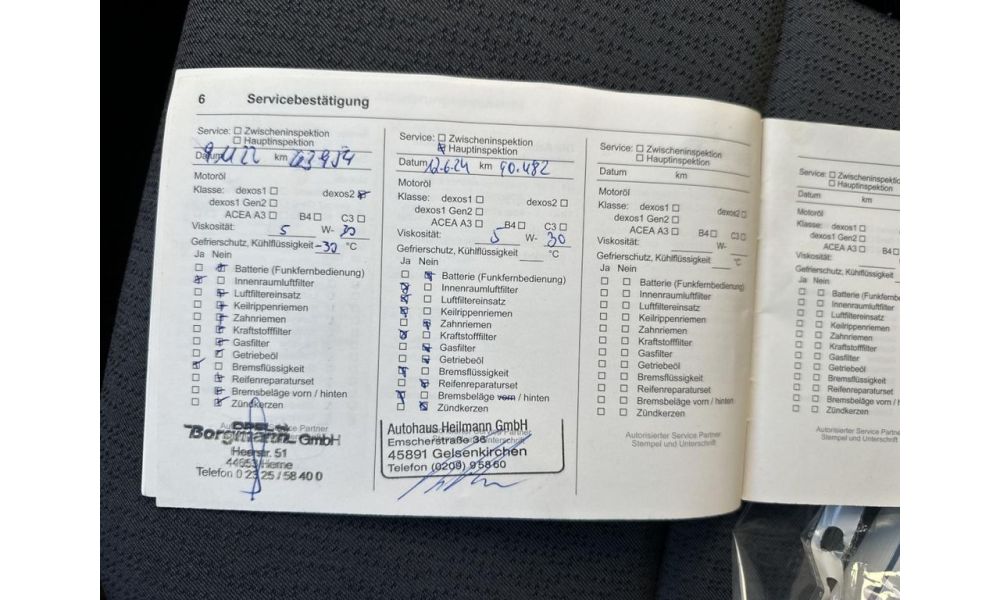 6 Servicebestätigung
Service: ☐ Zwischeninspektion
☐ Hauptinspektion
Datum 9.11.22 km 63954
Motoröl
Klasse: dexos1 ☐ dexos2 ☒
dexos1 Gen2 ☐
ACEA A3 ☐ B4 ☐ C3 ☐
Viskosität: 5 W- 30
Gefrierschutz, Kühlflüssigkeit -30 °C
Ja Nein
☐ ☒ Batterie (Funkfernbedienung)
☒ ☐ Innenraumluftfilter
☐ ☒ Luftfiltereinsatz
☐ ☒ Keilrippenriemen
☐ ☒ Zahnriemen
☐ ☒ Kraftstofffilter
☐ ☒ Gasfilter
☐ ☒ Getriebeöl
☒ ☐ Bremsflüssigkeit
☐ ☒ Reifenreparaturset
☐ ☒ Bremsbeläge vorn / hinten
☐ ☒ Zündkerzen
Autorisierter Service Partner
OPEL
Borgmann GmbH
Heerstr. 51
44653 Herne
Telefon 0 23 25 / 58 40 0
Service: ☐ Zwischeninspektion
☒ Hauptinspektion
Datum 12.6.24 km 90.482
Motoröl
Klasse: dexos1 ☐ dexos2 ☐
dexos1 Gen2 ☐
ACEA A3 ☐ B4 ☐ C3 ☐
Viskosität: 5 W- 30
Gefrierschutz, Kühlflüssigkeit °C
Ja Nein
☐ ☒ Batterie (Funkfernbedienung)
☒ ☐ Innenraumluftfilter
☒ ☐ Luftfiltereinsatz
☒ ☐ Keilrippenriemen
☐ ☒ Zahnriemen
☒ ☐ Kraftstofffilter
☐ ☒ Gasfilter
☐ ☒ Getriebeöl
☒ ☐ Bremsflüssigkeit
☐ ☒ Reifenreparaturset
☒ ☐ Bremsbeläge vorn / hinten
☐ ☒ Zündkerzen
Autohaus Heilmann GmbH
Emscherstraße 36
45891 Gelsenkirchen
Telefon (0209) 9 58 60
Service: ☐ Zwischeninspektion
☐ Hauptinspektion
Datum km
Motoröl
Klasse: dexos1 ☐ dexos2 ☐
dexos1 Gen2 ☐
ACEA A3 ☐ B4 ☐ C3 ☐
Viskosität: W-
Gefrierschutz, Kühlflüssigkeit °C
Ja Nein
☐ ☐ Batterie (Funkfernbedienung)
☐ ☐ Innenraumluftfilter
☐ ☐ Luftfiltereinsatz
☐ ☐ Keilrippenriemen
☐ ☐ Zahnriemen
☐ ☐ Kraftstofffilter
☐ ☐ Gasfilter
☐ ☐ Getriebeöl
☐ ☐ Bremsflüssigkeit
☐ ☐ Reifenreparaturset
☐ ☐ Bremsbeläge vorn / hinten
☐ ☐ Zündkerzen
Autorisierter Service Partner
Stempel und Unterschrift
Service: ☐ Zwischeninspektion
☐ Hauptinspektion
Datum km
Motoröl
Klasse: dexos1 ☐
dexos1 Gen2 ☐
ACEA A3 ☐ B4 ☐
Viskosität:
Gefrierschutz, Kühlflüssigkeit
Ja Nein
☐ ☐ Batterie (Funkfernb
☐ ☐ Innenraumluftfilter
☐ ☐ Luftfiltereinsatz
☐ ☐ Keilrippenriemen
☐ ☐ Zahnriemen
☐ ☐ Kraftstofffilter
☐ ☐ Gasfilter
☐ ☐ Getriebeöl
☐ ☐ Bremsflüssigkeit
☐ ☐ Reifenreparaturset
☐ ☐ Bremsbeläge vorn
☐ ☐ Zündkerzen
Autorisierter Service Partner
Stempel und Unterschrift